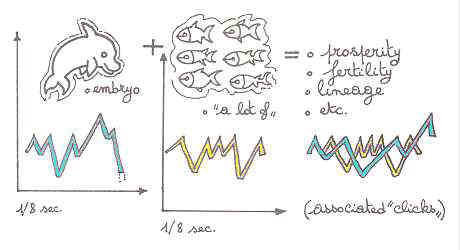 embryo
"a lot of„
= prosperity
fertility
lineage
etc.
1/8 sec.
1/8 sec.
(associated "clicks„)